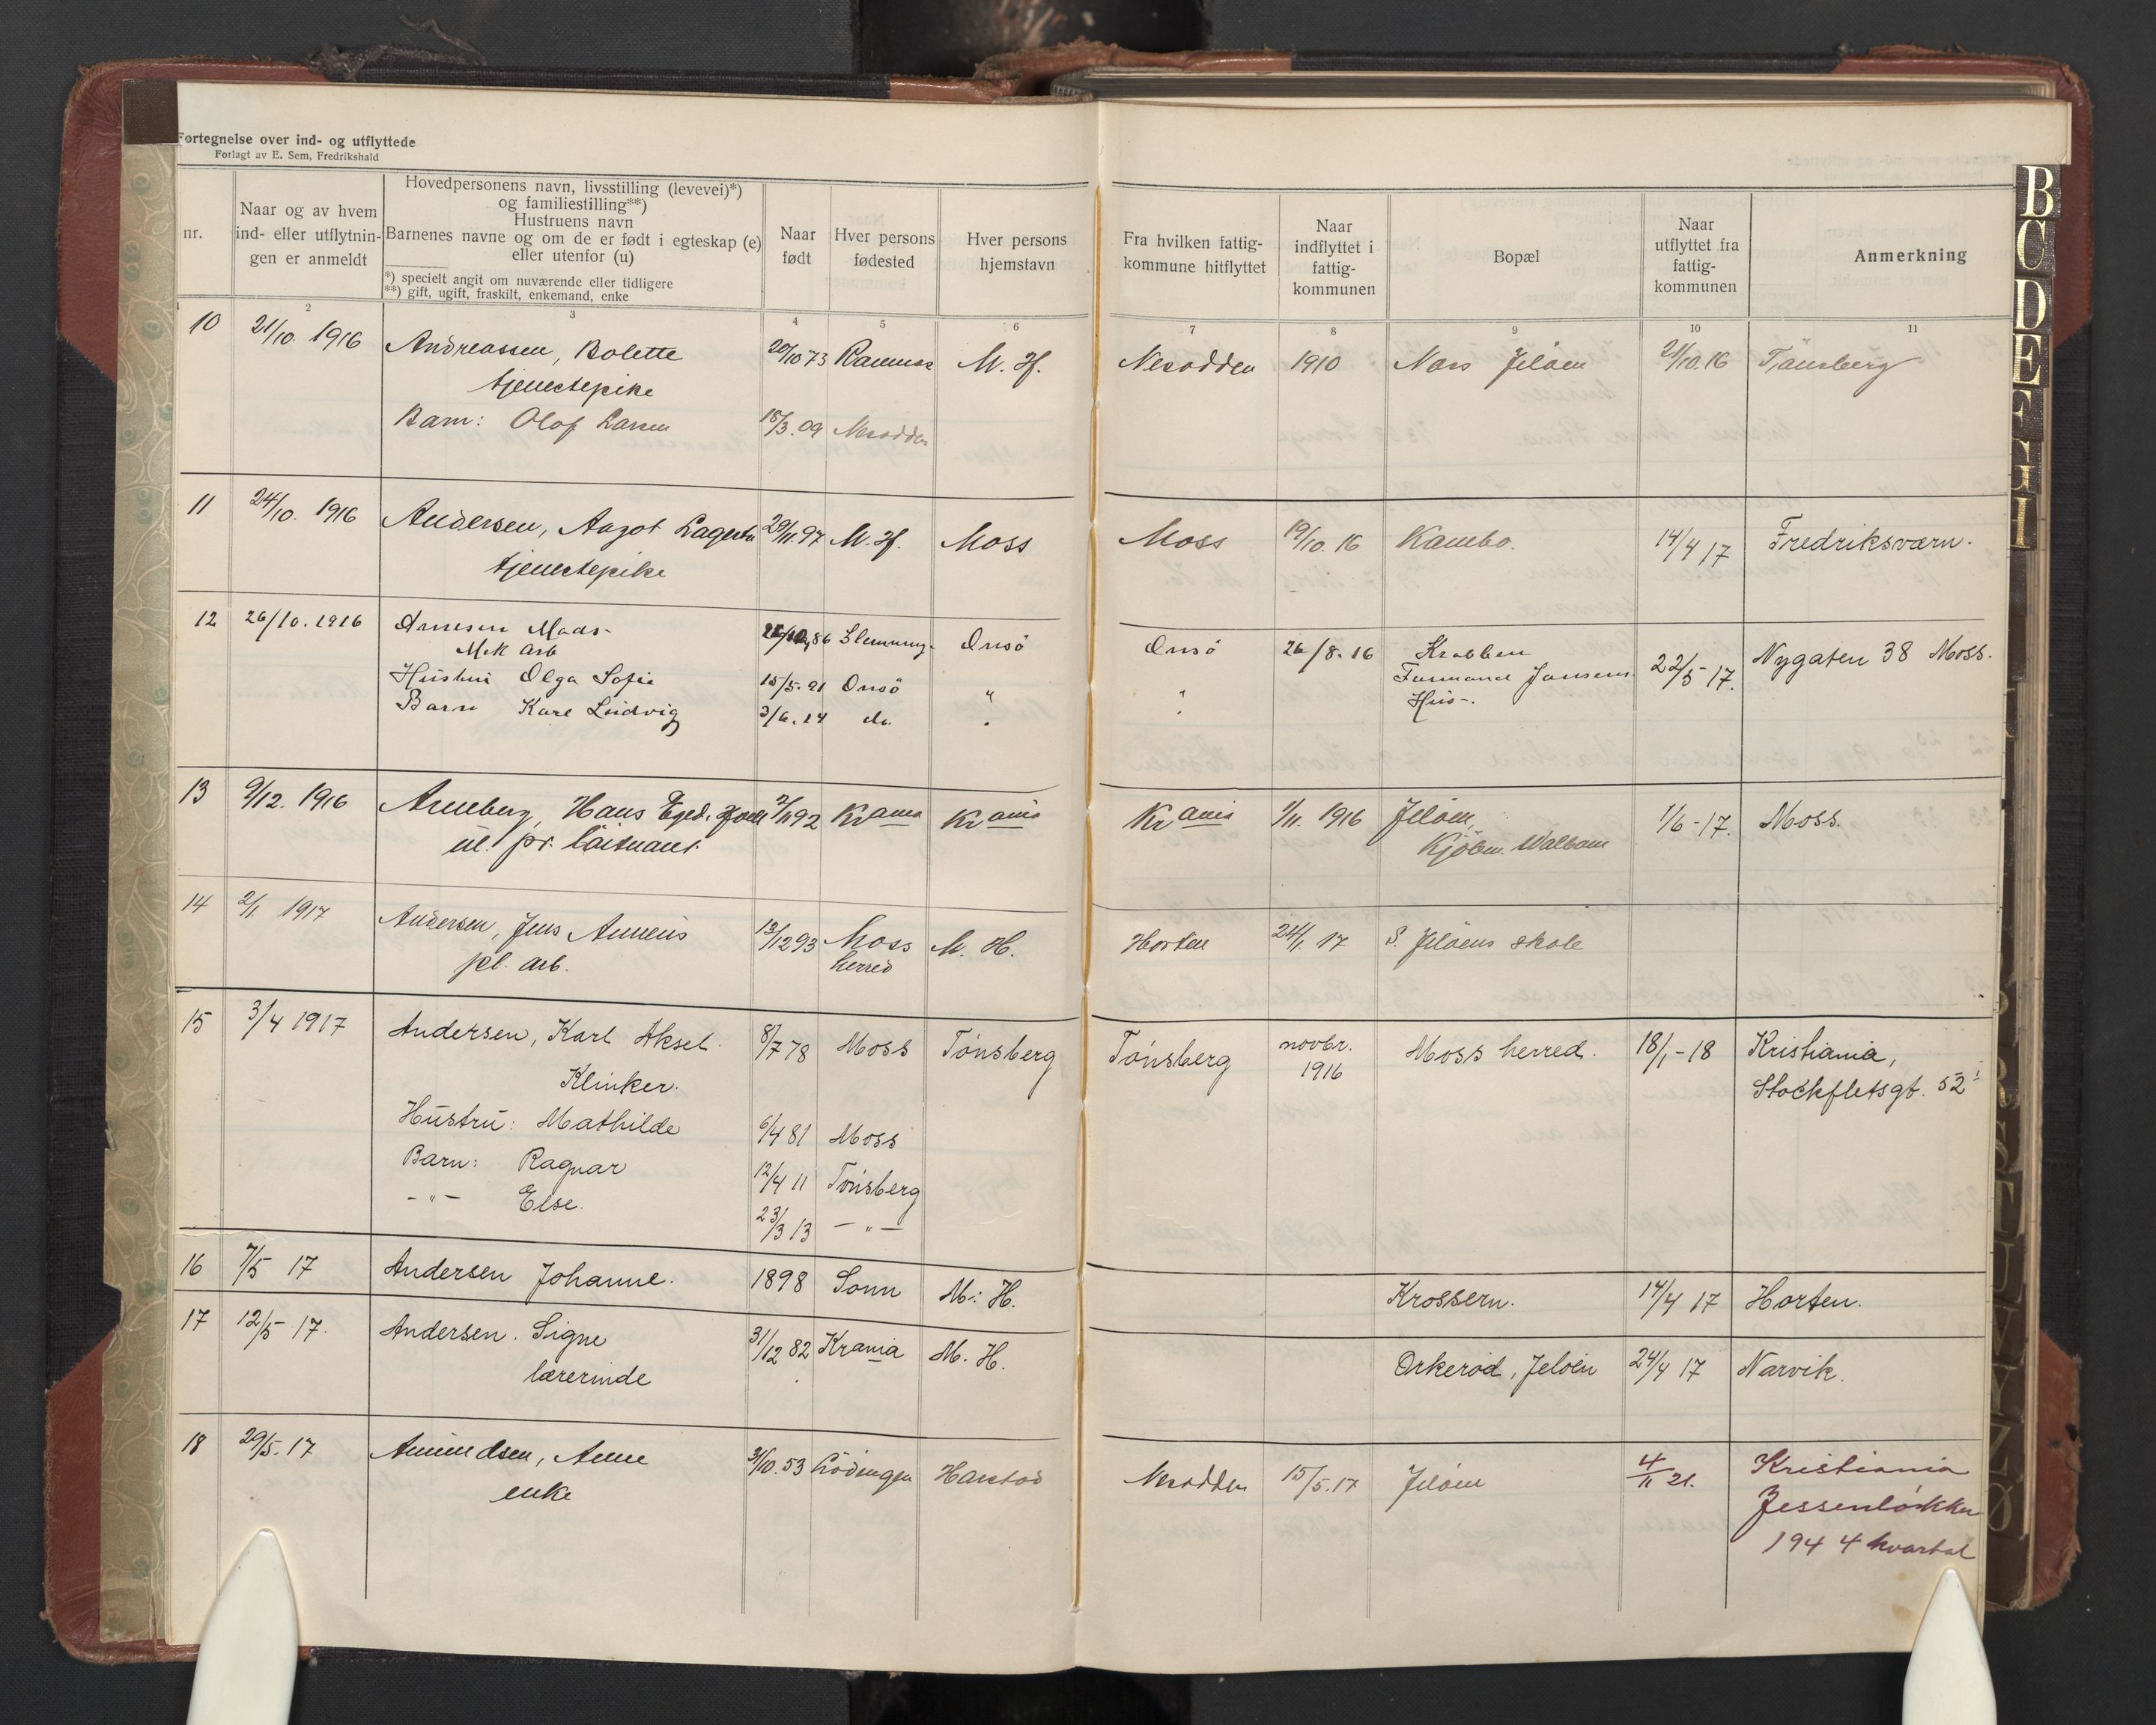 Fortegnelse over ind- og utflyttede
Forlagt av E. Sem, Fredrikshald
nr.
Naar og av hvem
ind- eller utflytnin-
gen er anmeldt
Hovedpersonens navn, livsstilling (levevei)*)
og familiestilling**)
Hustruens navn
Barnenes navne og om de er født i egteskap (e)
eller utenfor (u)
*) specielt angit om nuværende eller tidligere
**) gift, ugift, fraskilt, enkemand, enke
Naar
født
Hver persons
fødested
Hver persons
hjemstavn
Fra hvilken fattig-
kommune hitflyttet
Naar
indflyttet i
fattig-
kommunen
Bopæl
Naar
utflyttet fra
fattig-
kommunen
Anmerkning
1 2 3 4 5 6 7 8 9 10 11
10 21/10. 1916 Andreassen, Bolette 20/10 73 M. H. Nesodden 1910 Næs Jeløen 21/10.16 Tønsberg
tjenestepike
Barn: Olof Larsen 18/3.09 Nesodden
11 24/10. 1916 Andersen, Aagot Lagerta 29/11.97 M. H. Moss Moss 19/10.16 Kambo. 14/4 17 Fredriksværn.
tjenestepike
12 26/10.1916 Arnesen Mads 86 Slemmung. Onsö Onsö 26/8.16 Krabben 22/5-17. Nygaten 38 Moss.
Mek arb Formand Jansens
Hustru Olga Sofie 15/5.91 Onsö " " Hus-.
Barn Kare Ludvig 3/6.14 do. " "
13 9/12. 1916 Arneberg, Hans Eged. 2/11 92 Krania Krania Krania 1/11. 1916 Jeløen, 1/6-17. Moss.
pr. løitnant Kjøbm. Walbom
14 2/1 1917 Andersen, Jens Anneus 13/12 93 Moss M. H. Horten 24/1 17 S. Jeløens skole
pl. arb. herred
15 3/4 1917 Andersen, Karl Aksel. 8/7 78 Moss Tønsberg Tønsberg novbr. Moss herred. 18/1-18 Kristiania,
Klinker. 1916 Stockfletsgt. 52 I
Hustru: Mathilde 6/4 81 Moss
Barn: Ragnar 12/4 11 Tønsberg
-"- Else. 23/3 13 -"-
16 7/5 17 Andersen Johanne. 1898 Sonn M. H. Krossern. 14/4 17 Horten.
17 12/5-17. Andersen. Signe 31/12 82 Krania M. H. Orkerød, Jeløen 24/4 17 Narvik.
lærerinde
18 29/5.17 Amundsen, Anne 3/10.53 Lödingen Harstad Nesodden 15/5.17 Jeløen 4/11 21. Kristiania
enke Jessenløkken
194 4 kvartal
B
C
D
E
F
G
I